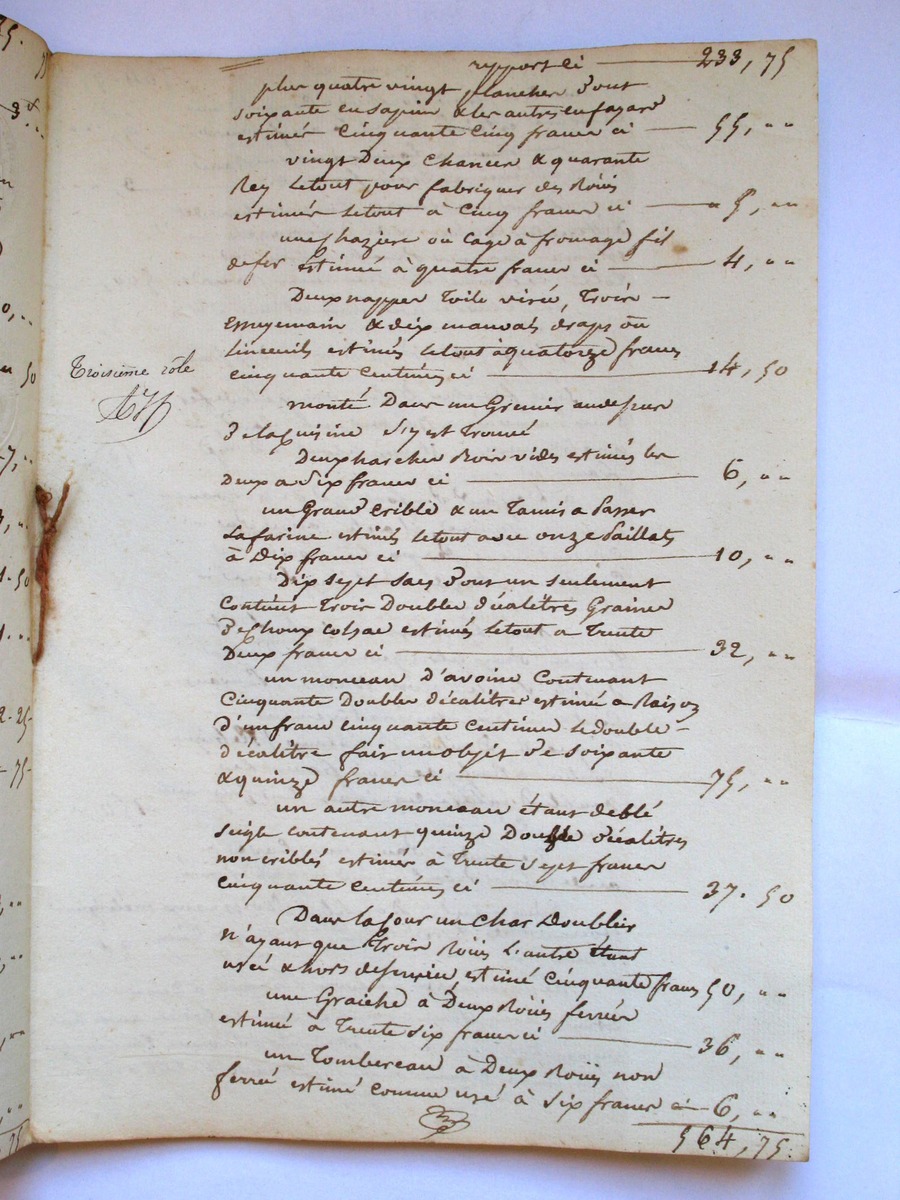 rapport ci — 233, 75
plus quatre vingt planches dont
soixante en sapin & les autres en fayard
estimés cinquante cinq francs ci — 55, "
vingt deux chancer & quarante
Rey le tout pour fabriquer des Roües
estimés le tout à cinq francs ci — 5, "
une chaziere où cage à fromage fil
de fer estimée à quatre francs ci — 4, "
Deux nappes toile virée, trois —
essuyemain & dix mauvais draps oû
linceuils estimés le tout à quatorze francs
cinquante centimes ci — 14, 50
Troisieme rôle
monté Dans un Grenier au dessus
de la Cuisine s'y est trouvé
Deux harches Noir vides estimés les
Deux a Six francs ci — 6, "
un Grand crible & un Tamis a Passer
la farine estimés le tout avec onze Paillats
à Dix francs ci — 10, "
Dix sept sacs dont un seulement
contient trois Doubles décalitres Graines
de Choux colsac estimés le tout a Trente
Deux francs ci — 32, "
un monceau d'avoine contenant
cinquante Doubles décalitres estimé a Raison
d'un franc cinquante centimes le double –
décalitre fait un objet de soixante
& quinze francs ci — 75, "
un autre monceau étant de blé
seigle contenant quinze Double décalitres
non criblés estimés à trente sept francs
cinquante centimes ci — 37. 50
Dans la Cour un Char Doubleis
n'ayant que trois Roües l'autre étant
usée & hors de service estimé cinquante francs 50, "
une Graiche à Deux Roües ferrées
estimée à trente six francs ci — 36, "
un Tombereau à Deux Roües non
ferrée estimé comme usé à six francs ci — 6, "
564, 75